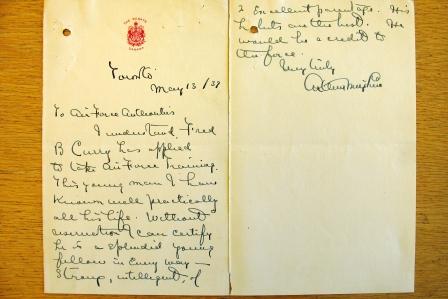 THE SENATE
CANADA
Toronto
May 13/39
To Air Force Authorities
I understand Fred
B Curry has applied
to take Air Force Training.
This young man I have
known well practically
all his life. Without
reservation I can certify
he is a splendid young
fellow in every way —
strong, intelligent, of
2 Excellent parentage. His
habits are the best. He
would be a credit to
the force.
Very truly
Arthur Meighen